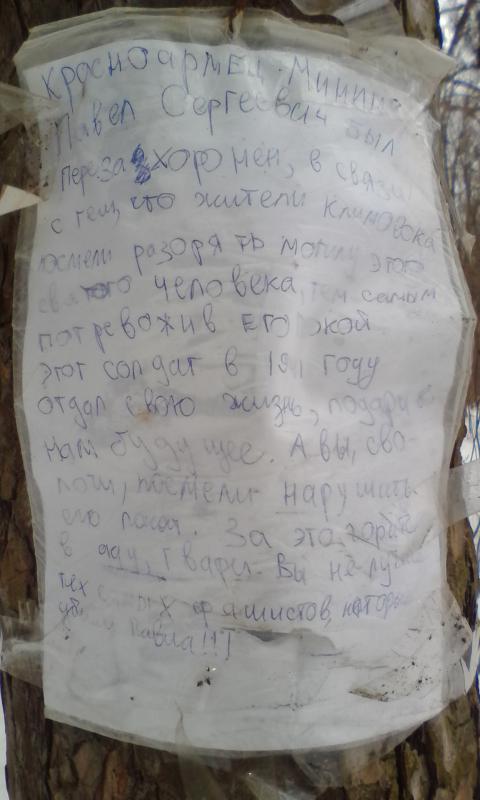 Красноармеец Минин
Павел Сергеевич был
перезахоронен, в связи
с тем, что жители Климовска
посмели разорять могилу этого
святого человека, тем самым
потревожив его покой
этот солдат в 1941 году
отдал свою жизнь, подарив
нам будущее. А вы, сво-
лочи, посмели нарушить
его покой. За это горите
в аду, твари. Вы не лучше
тех самых фашистов, которые
убили Павла!!!